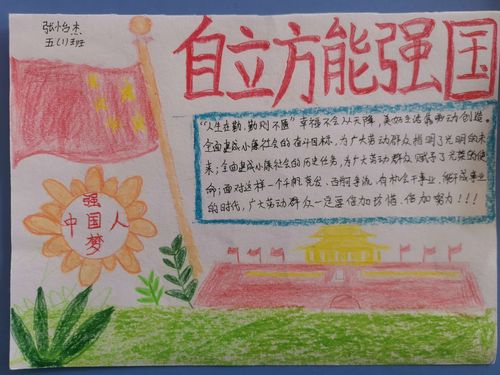 张怡杰
五(1)班
自立方能强国
"人生在勤,勤则不匮"幸福不会从天降,美好生活靠劳动创造。
全面建成小康社会的奋斗目标,为广大劳动群众指明了光明的未
来;全面建成小康社会的历史任务,为广大劳动群众赋予了光荣的使
命;面对这样一个千帆竞发、百舸争流、有机会干事业、能干成事业
的时代,广大劳动群众一定要倍加珍惜、倍加努力!!!
强
中国人
梦